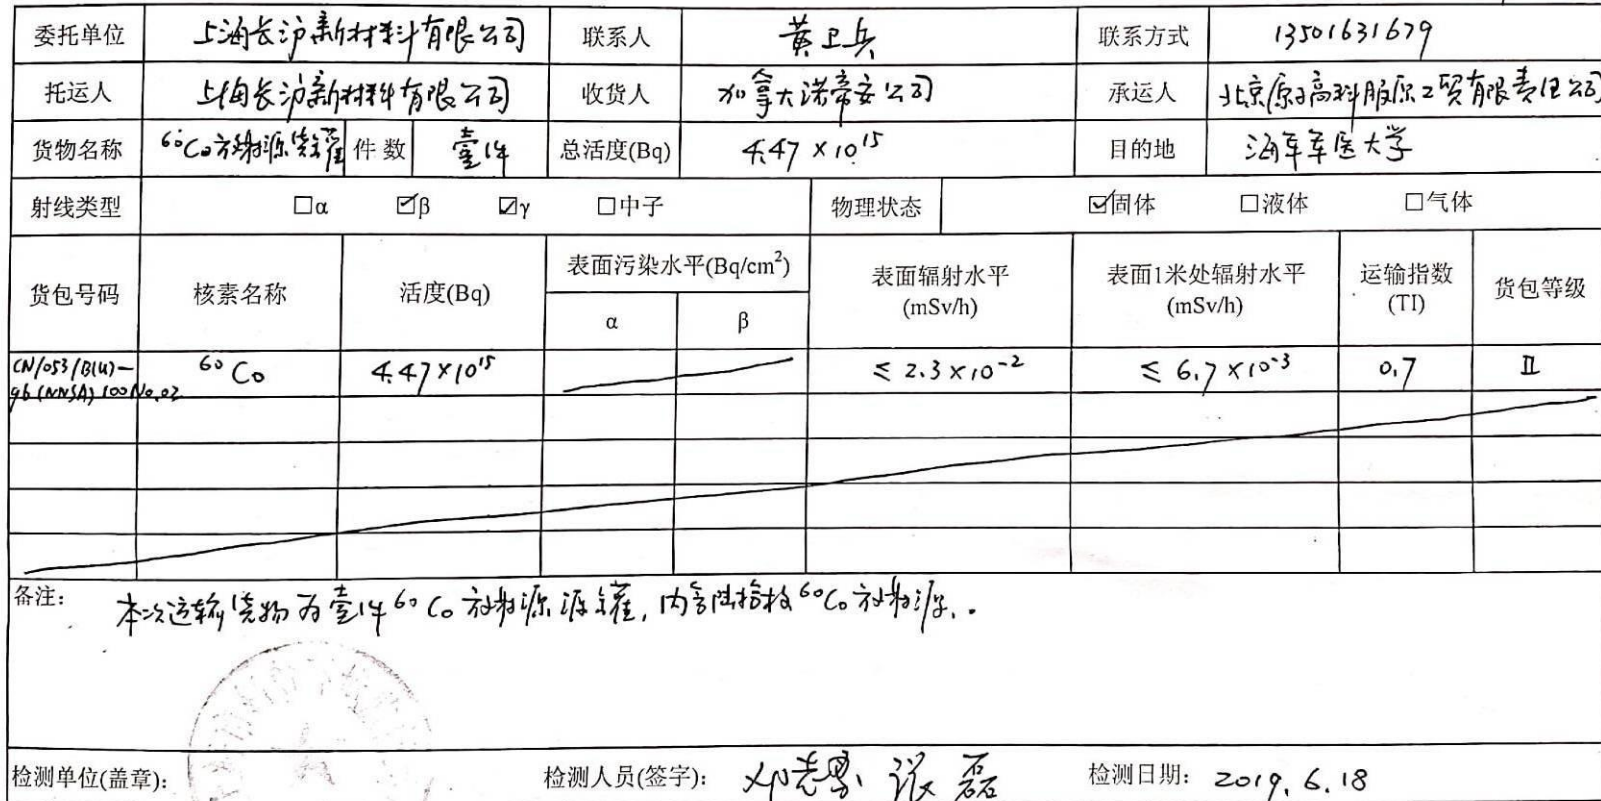 委托单位 上海长沪新材料有限公司 联系人 黄卫兵 联系方式 13501631679
托运人 上海长沪新材料有限公司 收货人 加拿大诺帝安公司 承运人 北京原子高科服原工贸有限责任公司
货物名称 60Co方射源货罐 件数 壹件 总活度(Bq) 4.47×10^15 目的地 海军军医大学
射线类型 □α ☑β ☑γ □中子 物理状态 ☑固体 □液体 □气体
货包号码 核素名称 活度(Bq) 表面污染水平(Bq/cm²) 表面辐射水平 表面1米处辐射水平 运输指数 货包等级
α β (mSv/h) (mSv/h) (TI)
CN/053/B(U)- 60Co 4.47×10^15 ≤ 2.3×10^-2 ≤ 6.7×10^-3 0.7 II
96(NNSA) 100 No.02
备注: 本次运输货物为壹件60Co放射源源罐,内含陆拾枚60Co放射源.
检测单位(盖章): 检测人员(签字): 张磊 检测日期: 2019.6.18